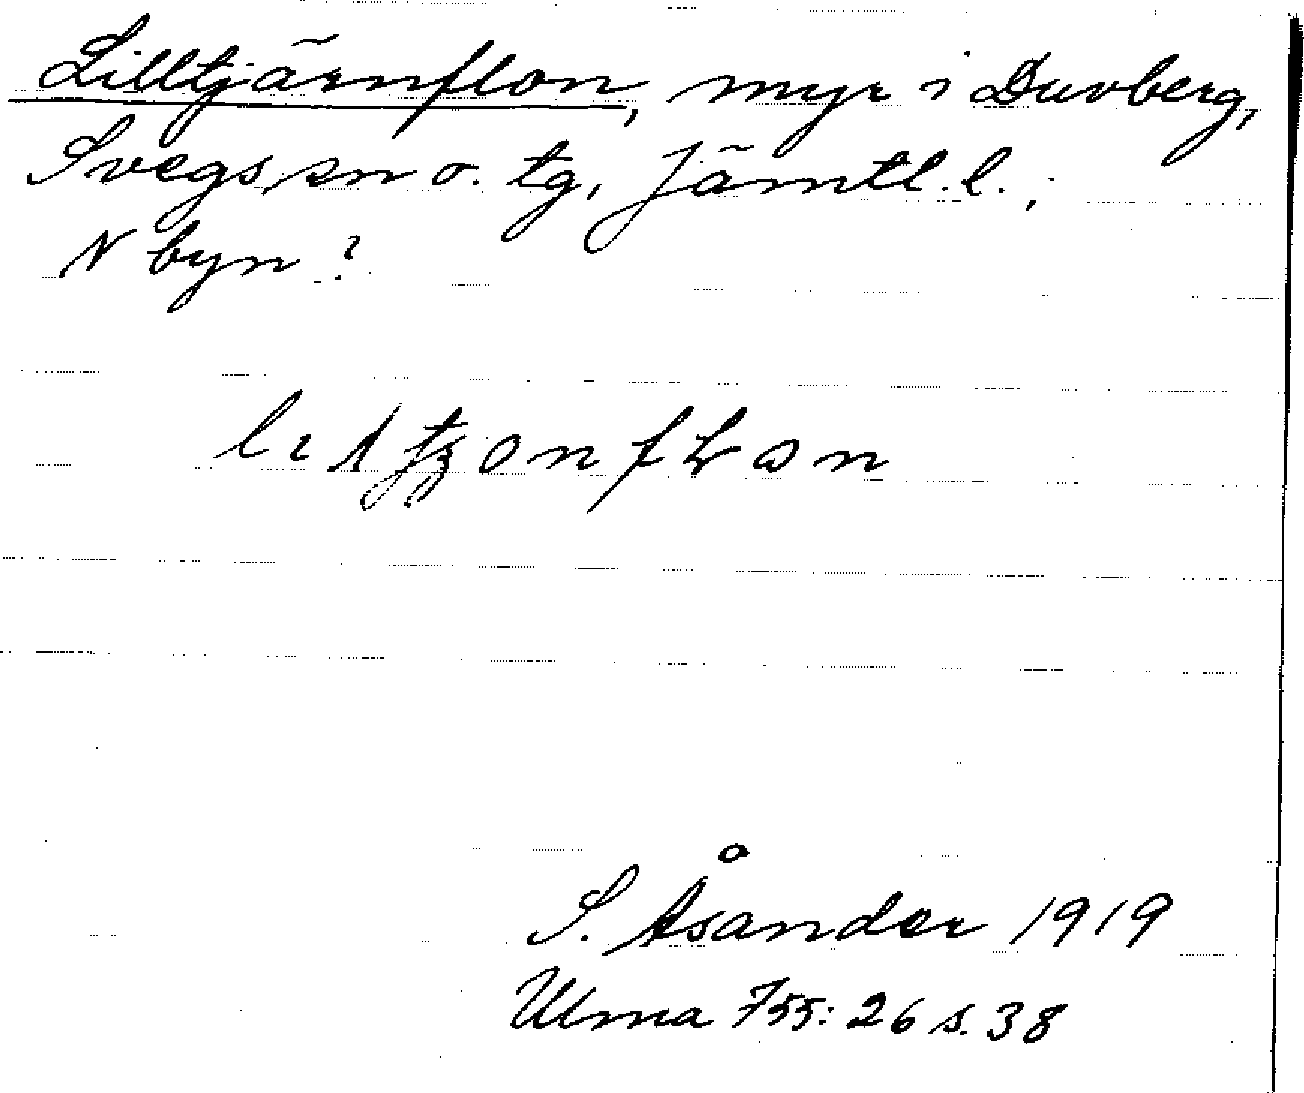 Lilltjärnflon, myr i Duvberg,
Svegs sn o. tg, Jämtl. l.,
N byn?
S. Åsander 1919
Ulma 755: 26 s. 38